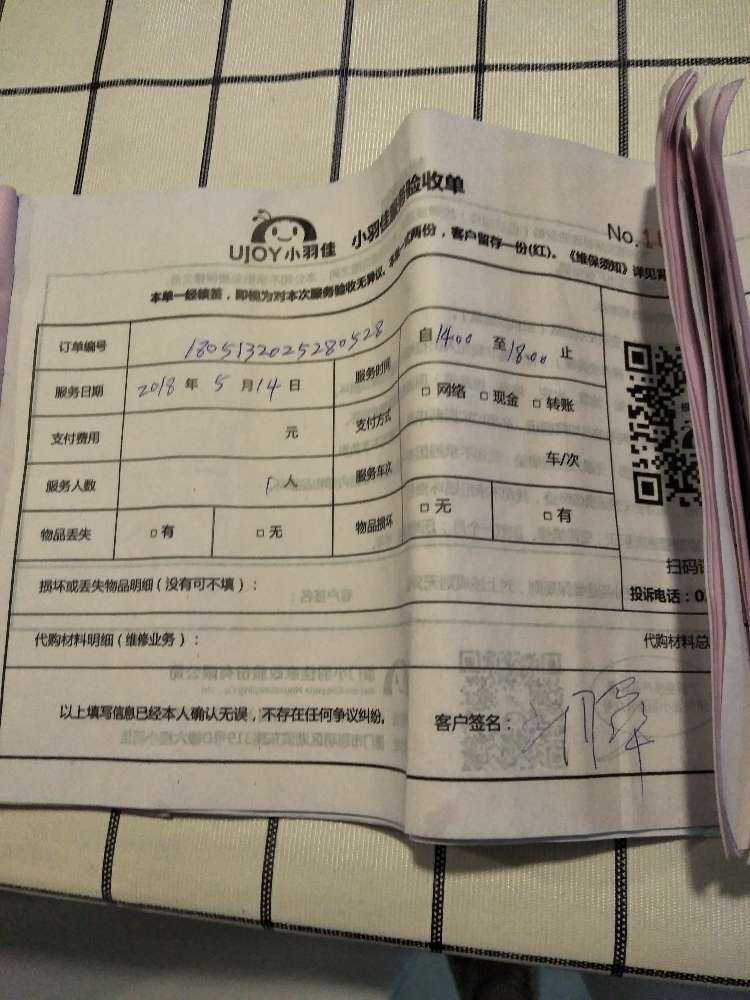 UJOY小羽佳 小羽佳服务验收单
No.1
本单一经锁盖，即视为对本次服务验收无异议。本单一式两份，客户留存一份(红)。《维保须知》详见背
订单编号 1805132025280528
服务时间 自14:00 至18:00 止
服务日期 2018 年 5 月 14 日
支付方式 □ 网络 □ 现金 □ 转账
支付费用 元
服务车次 车/次
服务人数 1 人
物品丢失 □ 有 □ 无 物品损坏 □ 无 □ 有
扫码
投诉电话：0
损坏或丢失物品明细（没有可不填）：
代购材料明细（维修业务）： 代购材料总
以上填写信息已经本人确认无误，不存在任何争议纠纷。 客户签名：